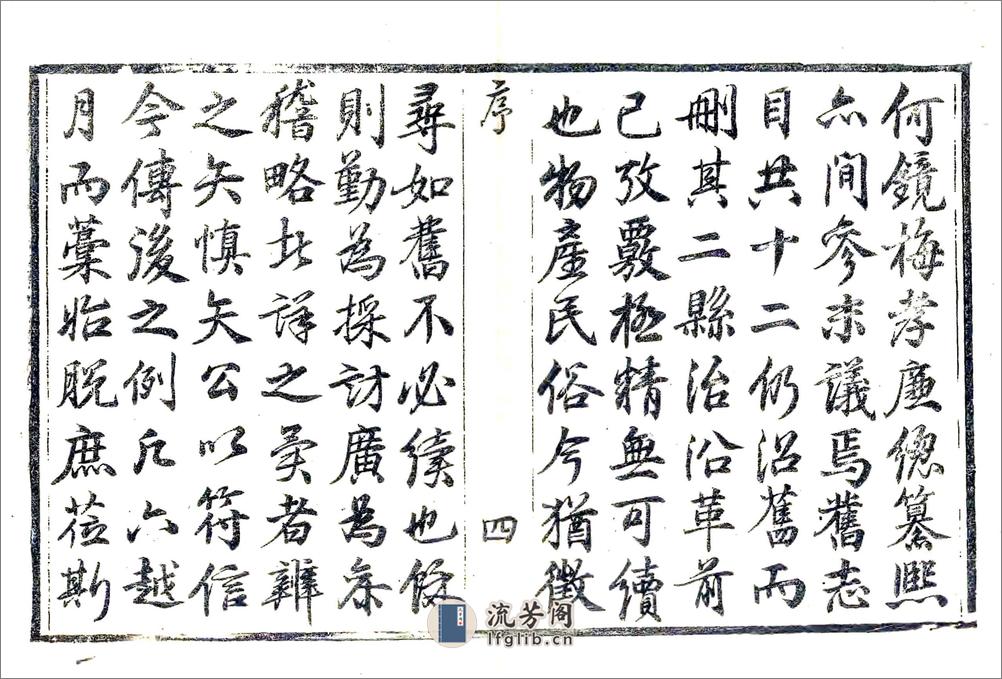 何鏡梅孝廉總纂熙
亦間參末議焉舊志
目共十二仍沿舊而
刪其二縣治沿革前
已攷覈極精無可續
也物產民俗今猶徵
序
四
尋如舊不必續也餘
則勤為採訪廣為參
稽略者詳之異者辨
之矢慎矢公以符信
今傳後之例凡六越
月而藁始脫庶蒞斯
流芳阁
lfglib.cn